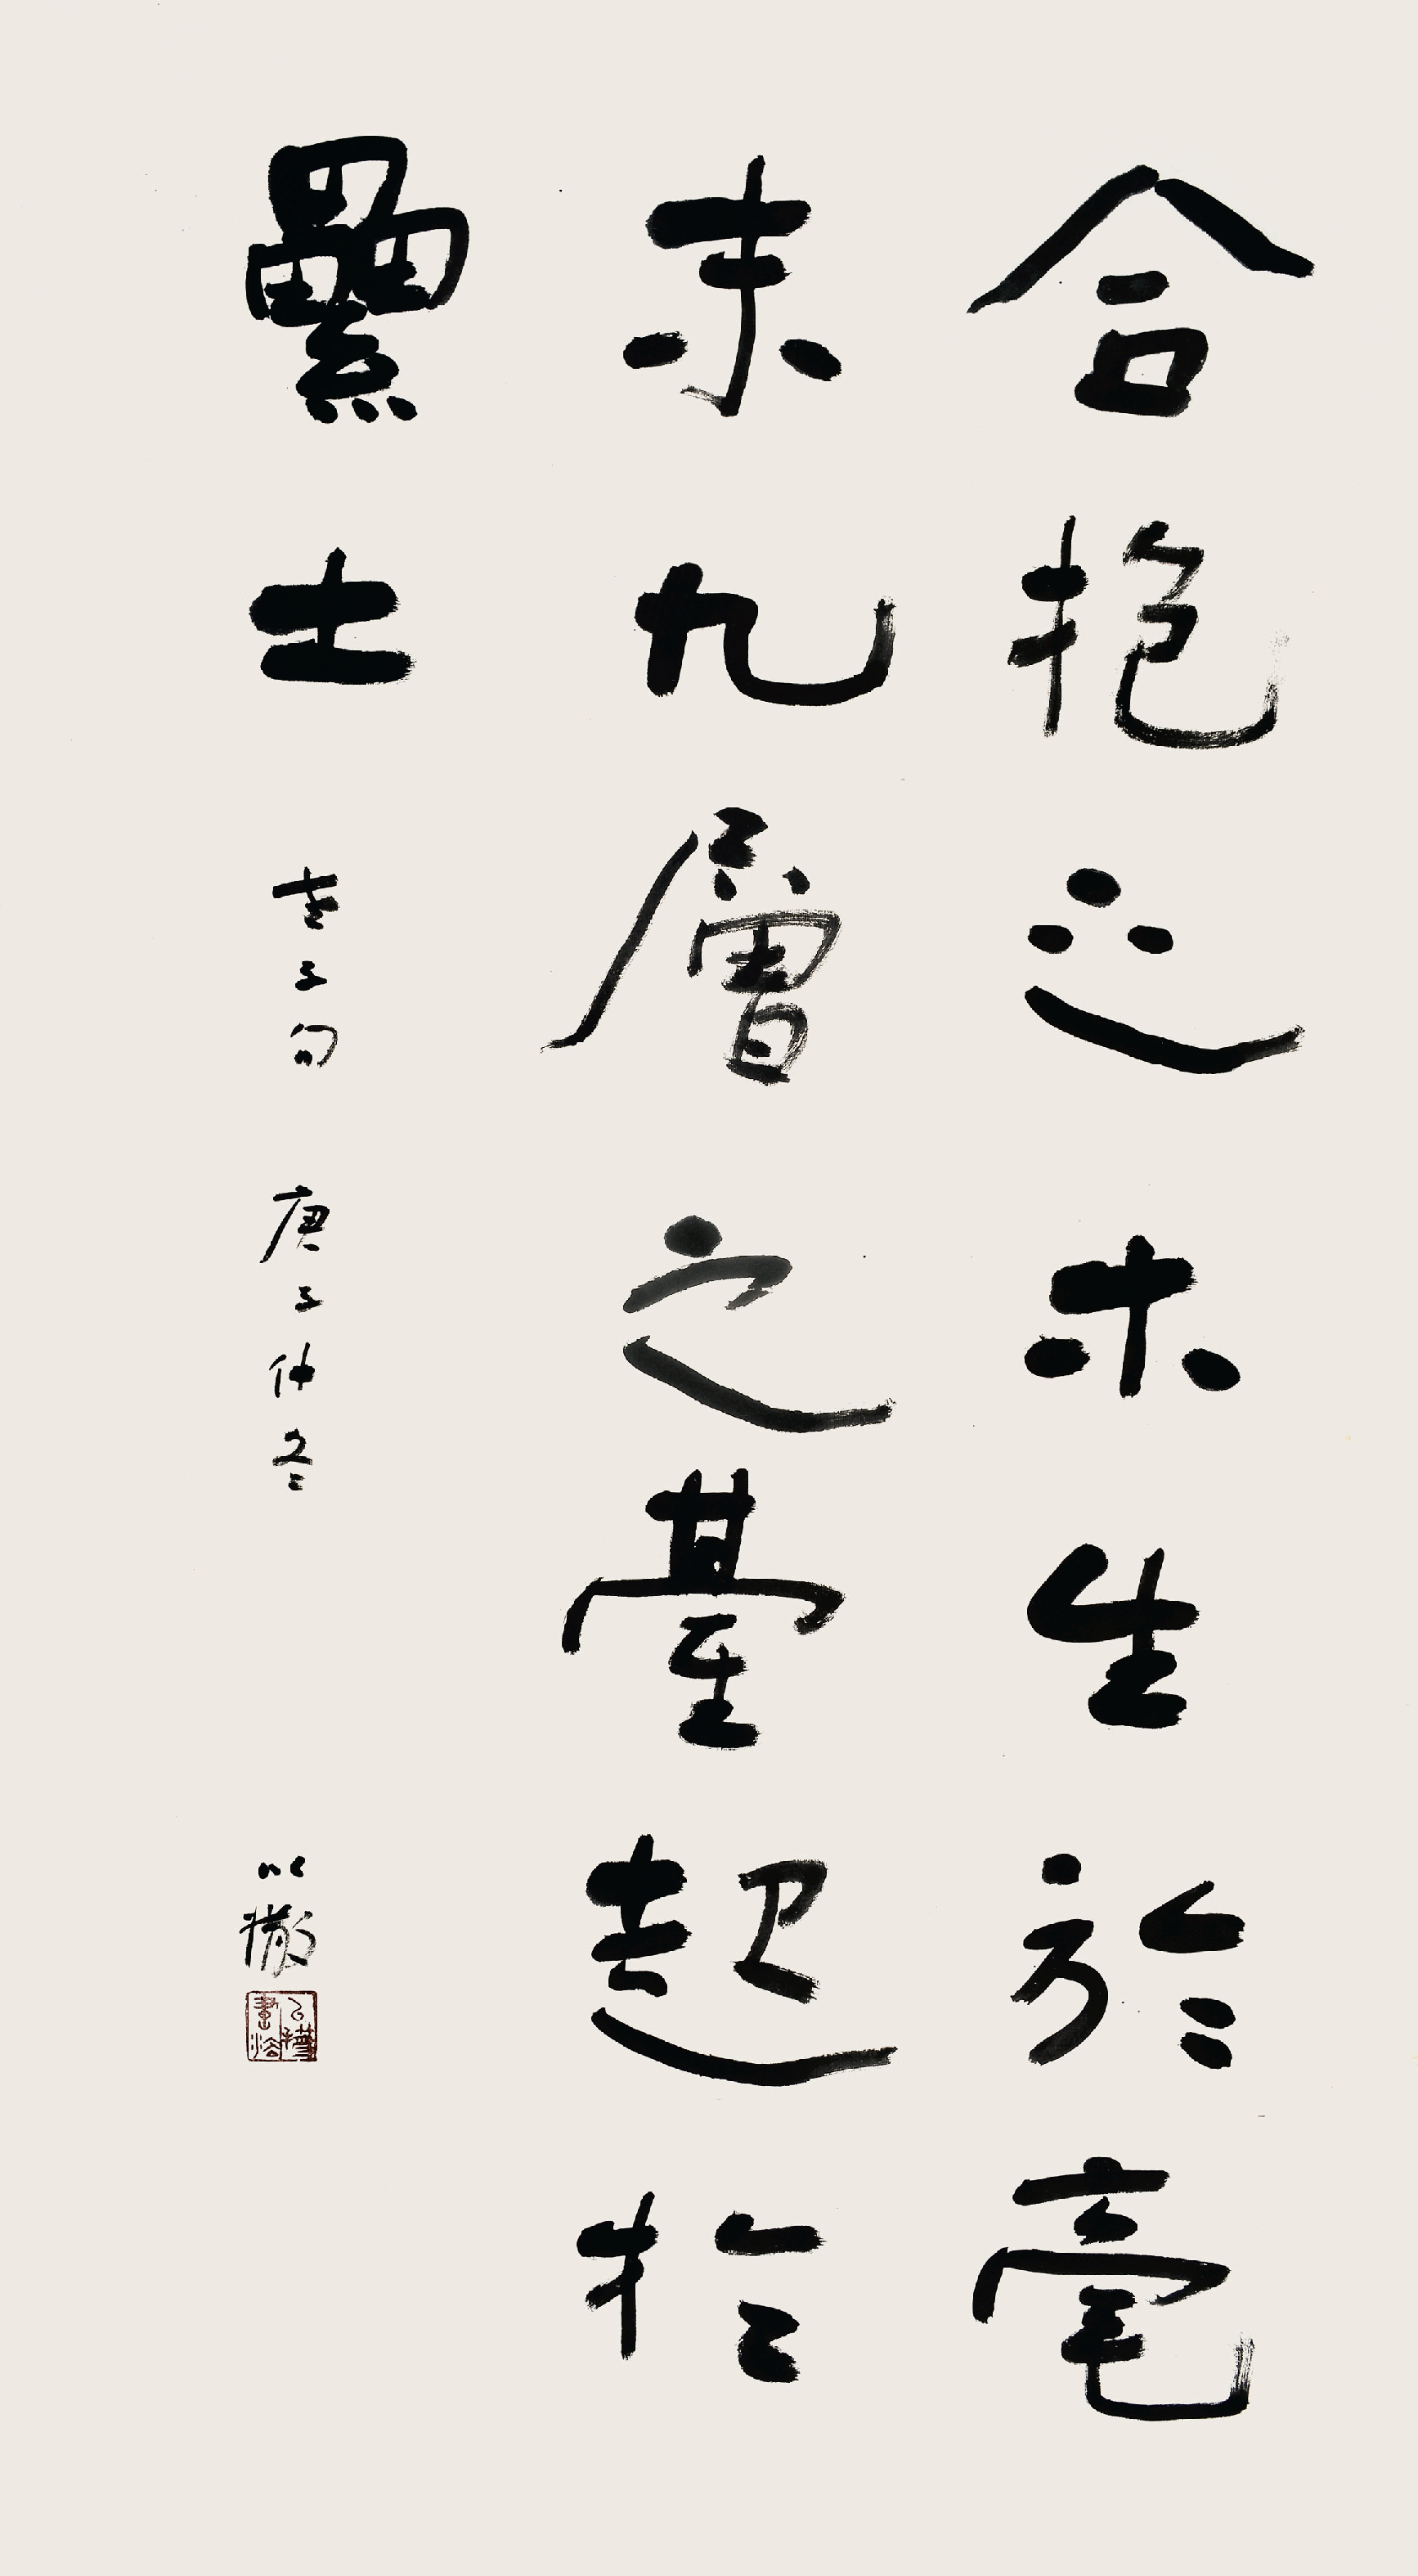 合抱之木生於毫
末九層之臺起於
纍土 老子句 庚子仲冬 以撒